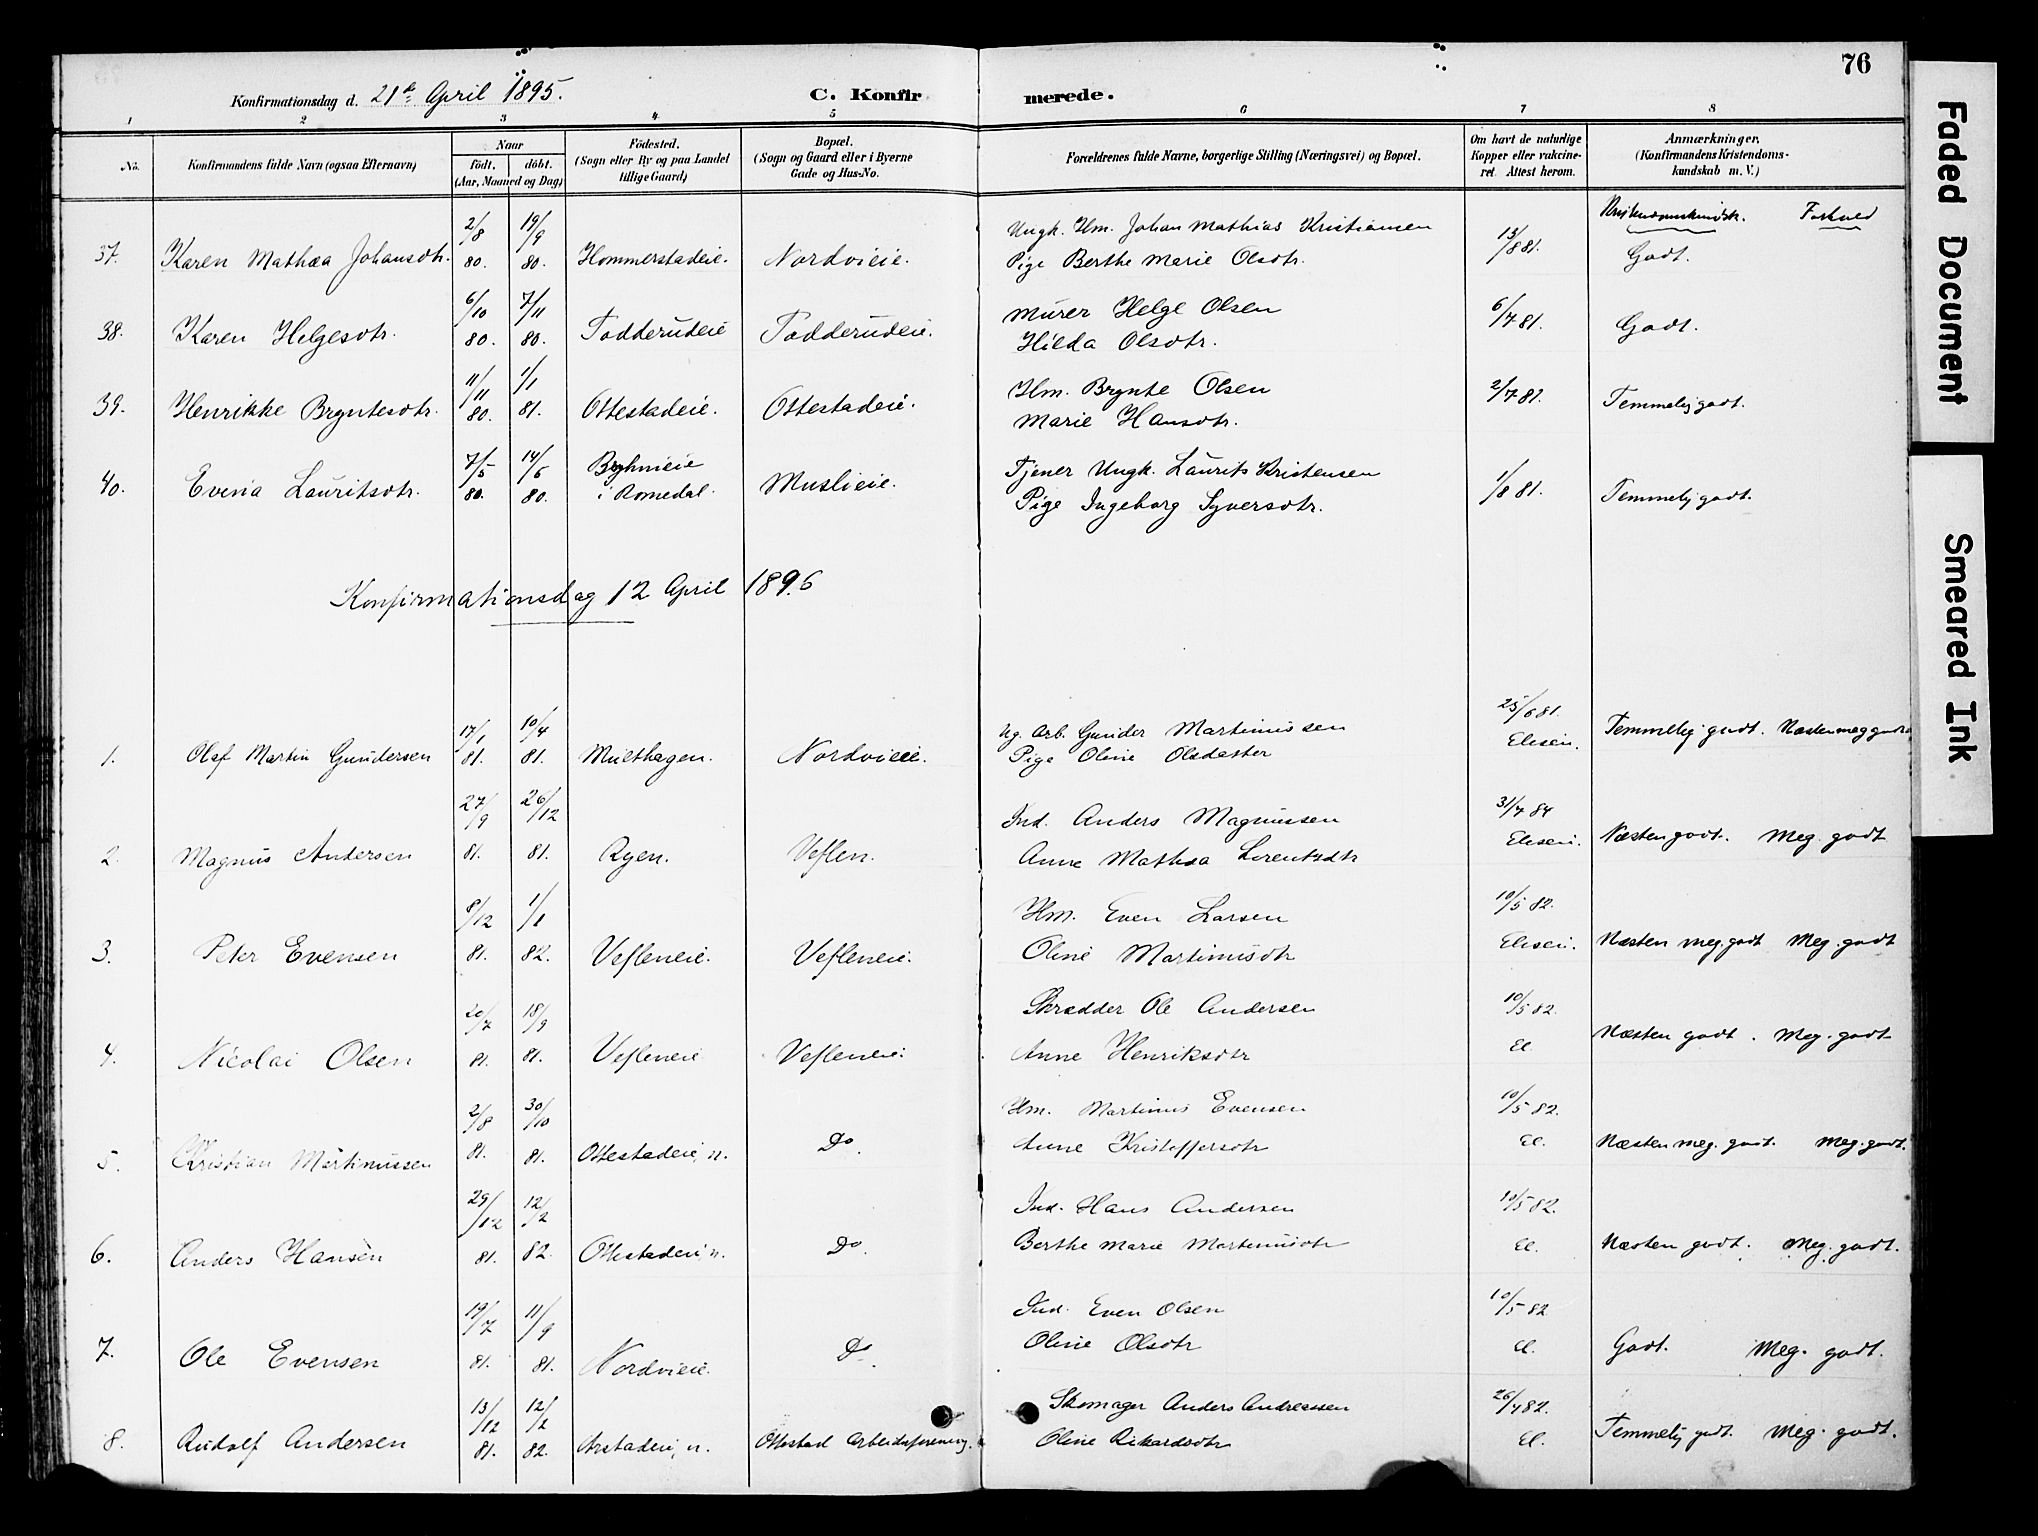 76
Konfirmationsdag d. 21de April 1895. C. Konfirmerede.
1 2 3 4 5 6 7 8
No. Konfirmandens fulde Navn (ogsaa Efternavn) Naar født. døbt. (Aar, Maaned og Dag) Fødested. (Sogn eller By og paa Landet tillige Gaard) Bopæl. (Sogn og Gaard eller i Byerne Gade og Hus-No. Forældrenes fulde Navne, borgerlige Stilling (Næringsvei) og Bopæl. Om havt de naturlige Kopper eller vakcineret. Attest herom. Anmærkninger, (Konfirmandens Kristendomskundskab m. V.)
Kristendomskundsk. Forhold
37. Karen Mathea Johansdtr. 2/8 80. 19/9 80. Hommerstadeie. Nordvieie. Ungk. Hm. Johan Mathias Kristiansen
Pige Berthe Marie Olsdtr. 13/8 81. Godt.
38. Karen Helgesdtr. 6/10 80. 7/11 80. Todderudeie Todderudeie. Murer Helge Olsen
Hilda Olsdtr. 6/7 81. Godt.
39. Henrikke Bryntesdtr. 11/11 80. 1/1 81. Ottestadeie. Ottestadeie. Hm. Brynte Olsen
Marie Hansdtr. 2/7 81. Temmelig godt.
40. Evena Lauritsdtr. 7/5 80. 14/6 80. i Romedal. Muslieie. Tjener Ungk. Laurits Kristensen
Pige Ingeborg Syversdtr. 1/8 81. Temmelig godt.
Konfirmationsdag 12 April 1896
1. Olaf Martin Gundersen 17/1 81. 10/4 81. Multhagen. Nordvieie. Ug. Arb. Gunder Martinussen
Pige Oline Olsdatter 25/6 81. Elisen. Temmelig godt. Næsten meg godt
2. Magnus Andersen 27/9 81. 26/12 81. Ryen. Veflen. Ind. Anders Magnussen
Anne Mathea Lorentsdtr 31/7 84 Elisen. Næsten godt. Meg. godt
3. Peter Evensen 8/12 81. 1/1 82. Vefleneie. Vefleneie. Hm. Even Larsen
Oline Martinusdtr 10/5 82. Elisen. Næsten meg. godt Meg. godt
4. Nicolai Olsen 20/7 81. 18/9 81. Vefleneie Vefleneie. Skrædder Ole Andersen
Anne Henriksdtr 10/5 82. El. Næsten godt. Meg. godt
5. Kristian Martinussen 2/8 81. 30/10 81. Ottestadeie, n. Do. Hm. Martinus Evensen
Anne Kristoffersdtr 10/5 82. El. Næsten meg. godt. Meg. godt.
6. Anders Hansen 29/12 81. 12/2 82. Ottestadeie, n. Do. Ind. Hans Andersen
Berthe Marie Martinusdtr 10/5 82. El. Næsten godt. Meg. godt.
7. Ole Evensen 19/7 81. 11/9 81. Nordvieie. Do. Ind. Even Olsen
Oline Olsdtr 10/5 82 El. Godt. Meg. godt.
8. Rudolf Andersen 13/12 81. 12/2 82. Arstadeie, n. Ottestad Arbeidsforening. Skomager Anders Andreassen
Oline Rikardsdtr 26/7 82. El. Temmelig godt. Meg. godt.
Faded Document
Smeared Ink